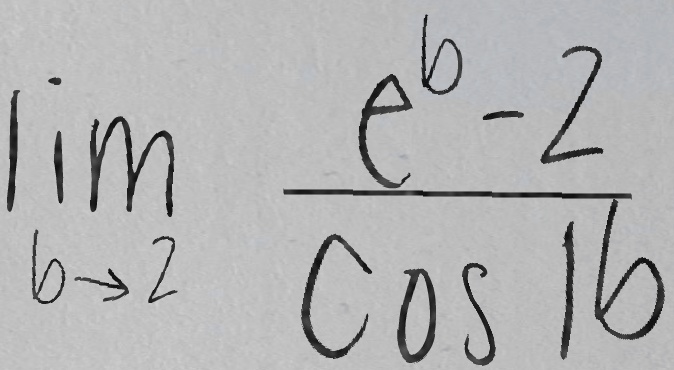 lim e^b - 2
b→2 cos 1b